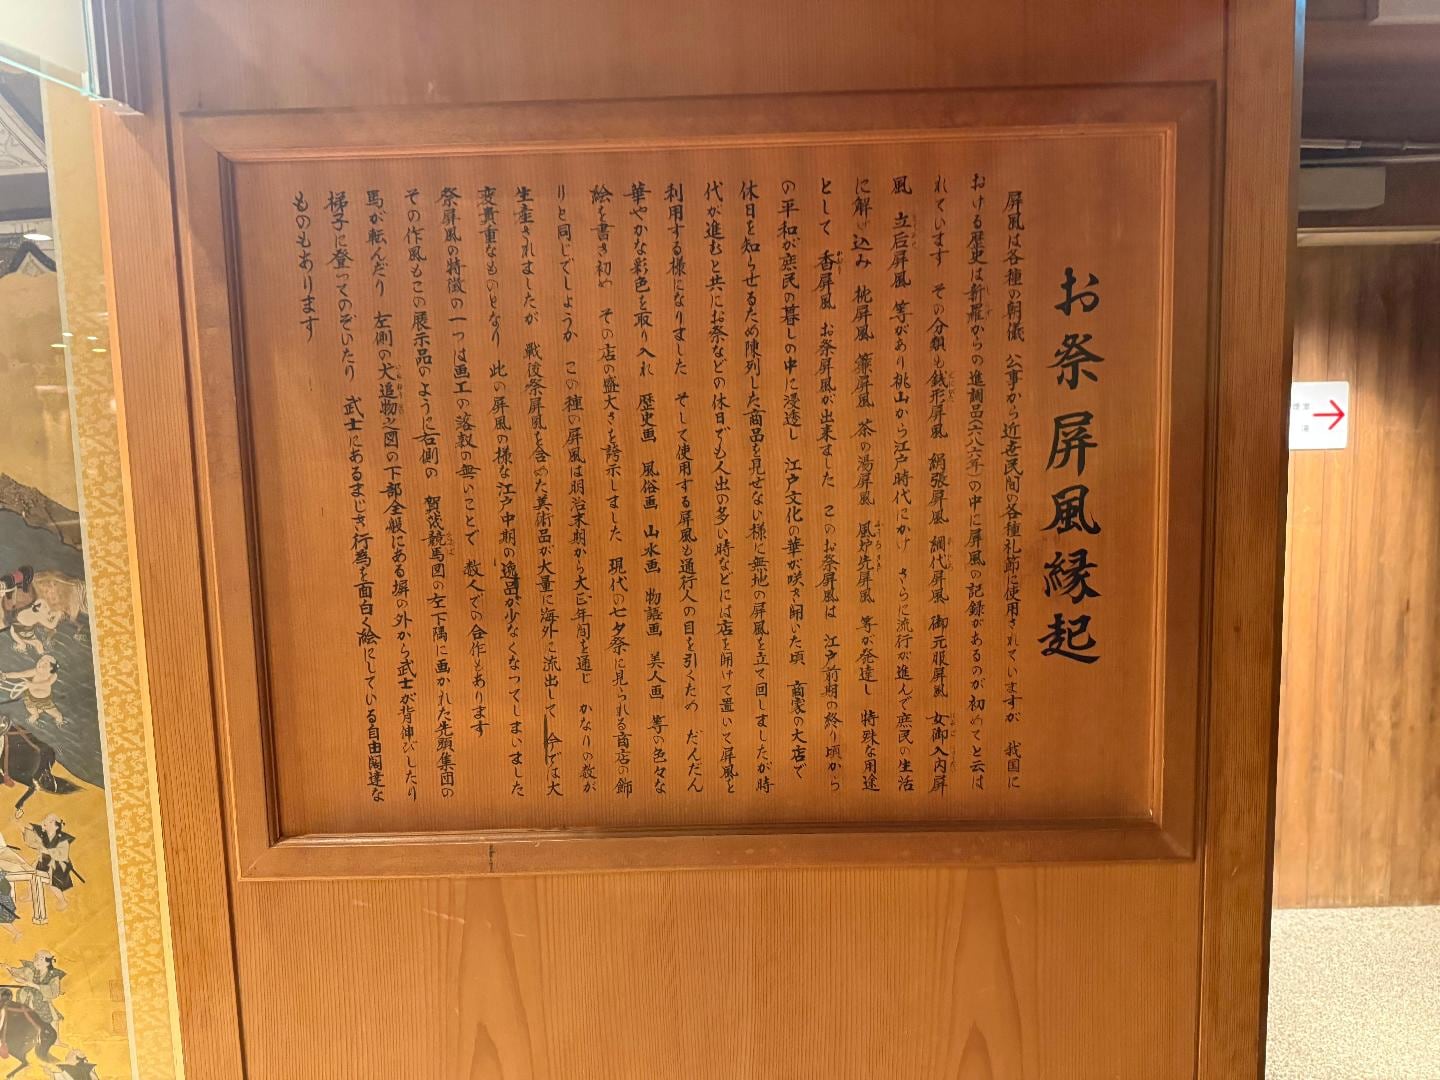 お祭屏風縁起
屏風は各種の朝儀 公事から近世民間の各種礼節に使用されていますが 我国に
おける歴史は新羅からの進調品(六八六年)の中に屏風の記録があるのが初めてと云は
れています その分類も銭形屏風 絹張屏風 網代屏風 御元服屏風 女御入内屏
風 立后屏風 等があり桃山から江戸時代にかけ さらに流行が進んで庶民の生活
に解け込み 枕屏風 簾屏風 茶の湯屏風 風炉先屏風 等が発達し 特殊な用途
として 香屏風 お祭屏風が出来ました このお祭屏風は 江戸前期の終り頃から
の平和が庶民の暮しの中に浸透し 江戸文化の華が咲き開いた頃 商家の大店で
休日を知らせるため陳列した商品を見せない様に無地の屏風を立て回しましたが時
代が進むと共にお祭などの休日でも人出の多い時などには店を開けて置いて屏風を
利用する様になりました そして使用する屏風も通行人の目を引くため だんだん
華やかな彩色を取り入れ 歴史画 風俗画 山水画 物語画 美人画 等の色々な
絵を書き初め その店の盛大さを誇示しました 現代の七夕祭に見られる商店の飾
りと同じでしょうか この種の屏風は明治末期から大正年間を通じ かなりの数が
生産されましたが 戦後祭屏風を含めた美術品が大量に海外に流出して 今では大
変貴重なものとなり 此の屏風の様な江戸中期の逸品が少なくなってしまいました
祭屏風の特徴の一つは画工の落款の無いことで 数人での合作もあります
その作風もこの展示品のように右側の 賀茂競馬図の左下隅に画かれた先頭集団の
馬が転んだり 左側の犬追物之図の下部全般にある塀の外から武士が背伸びしたり
梯子に登ってのぞいたり 武士にあるまじき行為を面白く絵にしている自由闊達な
ものもあります